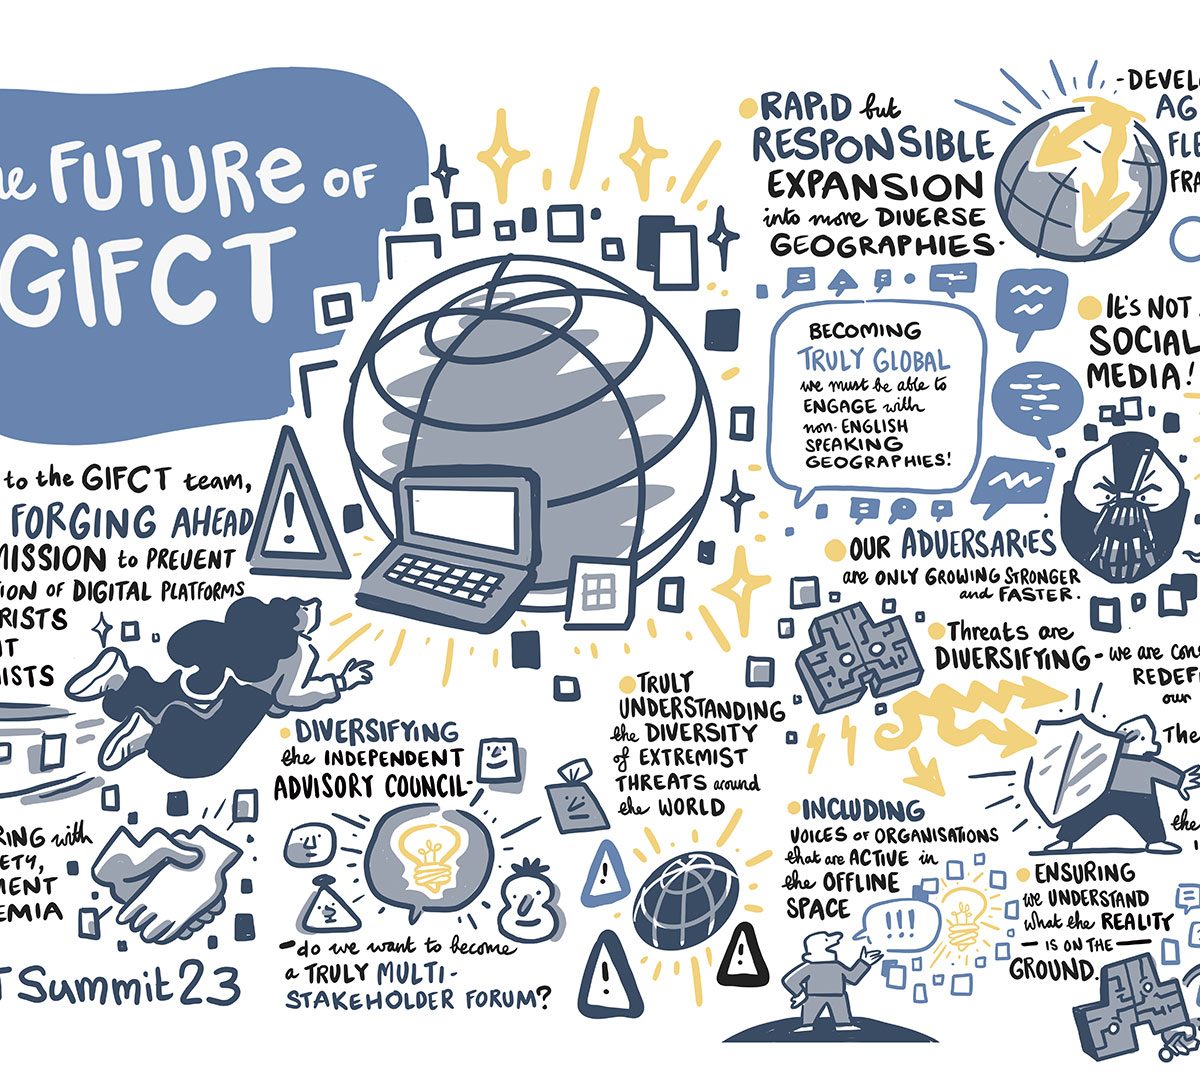 he FUTURE OF
GIFCT
to the GIFCT team,
FORGING AHEAD
MISSION to PREVENT
TION OF DIGITAL PLATFORMS
RISTS
T
ISTS
RING with
ETY,
MENT
EMIA
T Summit 23
DIVERSIFYING
the INDEPENDENT
ADVISORY COUNCIL-
- do we want to become
a TRULY MULTI-
STAKEHOLDER FORUM?
TRULY
UNDERSTANDING
the DIVERSITY
of EXTREMIST
THREATS around
the WORLD
RAPID but
RESPONSIBLE
EXPANSION
into more DIVERSE
GEOGRAPHIES.
BECOMING
TRULY GLOBAL
we must be able to
ENGAGE with
non-ENGLISH
SPEAKING
GEOGRAPHIES!
- DEVELO
AG
FLE
FRA
IT'S NOT
SOCIAL
MEDIA!
OUR ADVERSARIES
are ONLY GROWING STRONGER
and FASTER.
Threats are
DIVERSIFYING - we are cons
REDEF
our
The
the
INCLUDING
VOICES OF ORGANISATIONS
that are ACTIVE in
the OFFLINE
SPACE
!!!
ENSURING
we UNDERSTAND
what the REALITY
- IS ON THE -
GROUND.